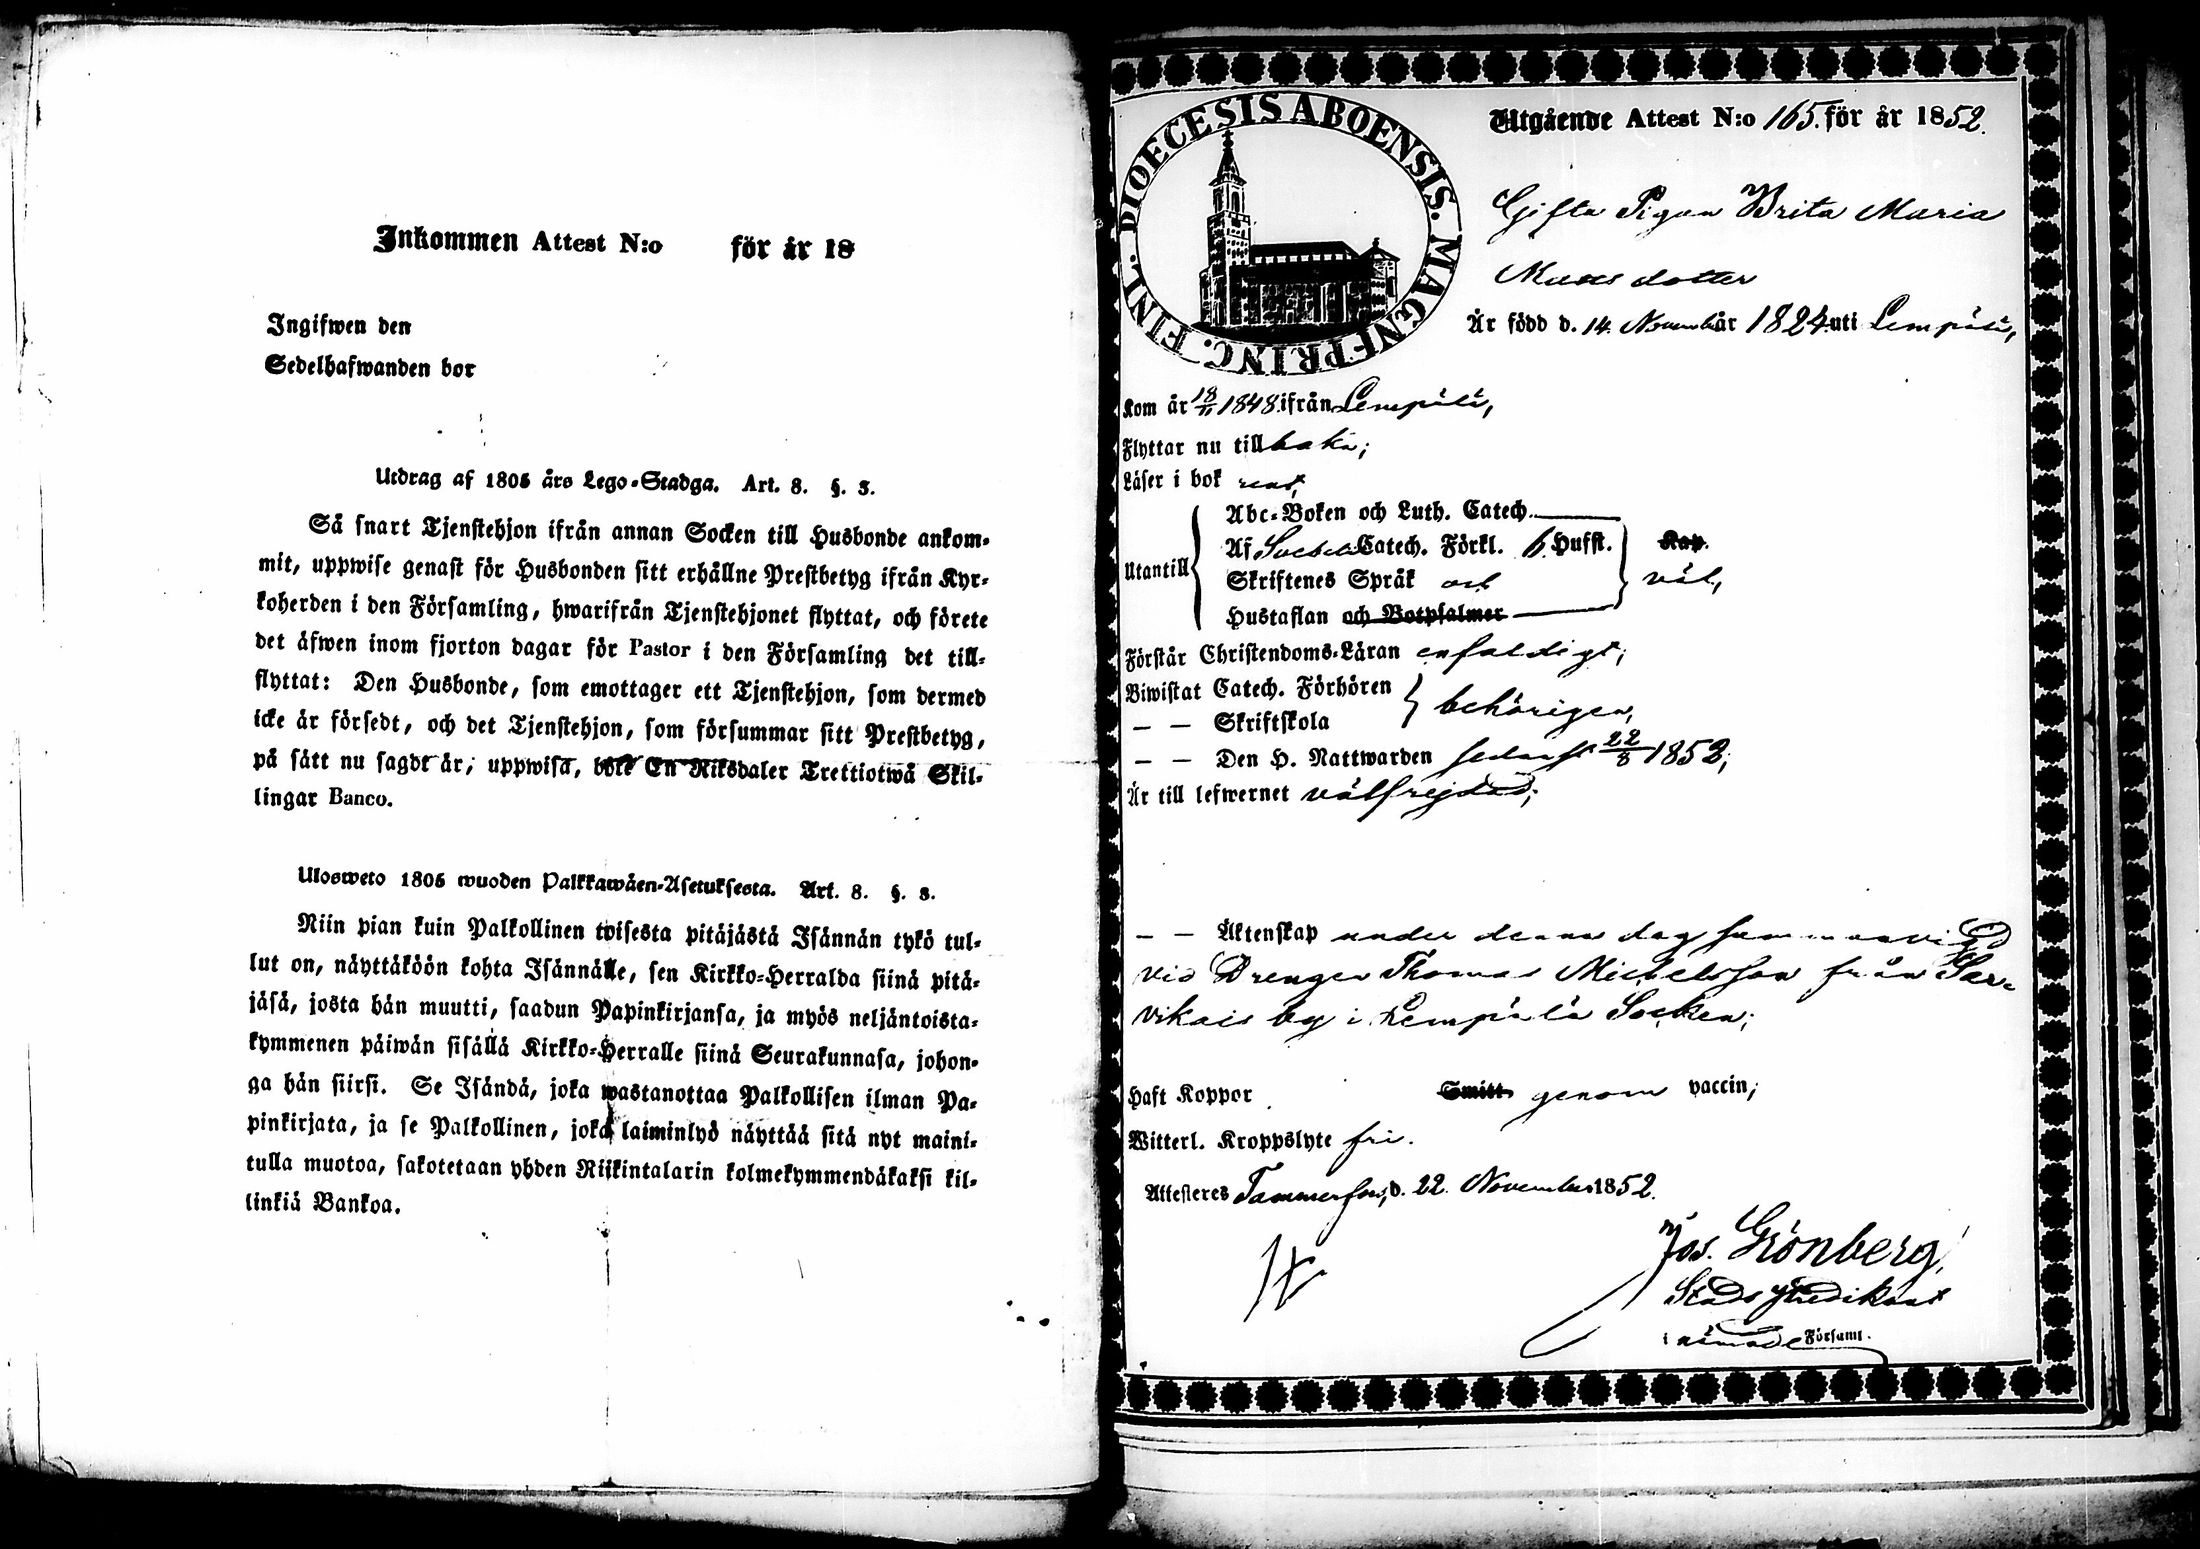 Inkommen Attest N:o för år 18
Ingifwen den
Sedelhafwanden bor
Utdrag af 1805 års Lego-Stadga. Art. 8. §. 3.
Så snart Tjenstehjon ifrån annan Socken till Husbonde ankom-
mit, uppwise genast för Husbonden sitt erhållne Prestbetyg ifrån Kyr-
koherden i den Församling, hwarifrån Tjenstehjonet flyttat, och förete
det äfwen inom fjorton dagar för Pastor i den Församling det till-
flyttat: Den Husbonde, som emottager ett Tjenstehjon, som dermed
icke är försedt, och det Tjenstehjon, som försummar sitt Prestbetyg,
på sätt nu sagdt är, uppwisa, böte En Riksdaler Trettiotwå Skil-
lingar Banco.
Ulosweto 1805 wuoden Palkkawäen-Asetuksesta. Art. 8. §. 3.
Niin pian kuin Palkollinen toisesta pitäjästä Isännän tykö tul-
lut on, näyttäköön kohta Isännälle, sen Kirkko-Herralda siinä pitä-
jäsä, josta hän muutti, saadun Papinkirjansa, ja myös neljäntoista-
kymmenen päiwän sisällä Kirkko-Herralle siinä Seurakunnasa, johon-
ga hän siirsi. Se Isändä, joka wastanottaa Palkollisen ilman Pa-
pinkirjata, ja se Palkollinen, joka laiminlyö näyttää sitä nyt maini-
tulla muotoa, sakotetaan yhden Riikintalarin kolmekymmendäkaksi kil-
linkiä Bankoa.
DIOECESIS ABOENSIS. MAGNI PRINC. FINL.
Utgående Attest N:o 165. för år 1852.
Gifta Pigan Brita Maria
Matts dotter
Är född d. 14. November år 1824 uti Lempälä,
Kom år 18/11 1848 ifrån Lempälä,
Flyttar nu tillbaka;
Läser i bok rent,
Utantill
Abc-Boken och Luth. Catech.
Af Svebel. Catech. Förkl. 6. Hufst.
Skriftenes Språk och
Hustaflan och Botpsalmer
Kap.
väl,
Förstår Christendoms-Läran enfaldigt;
Biwistat Catech. Förhören
— — Skriftskola
behörigen,
— — Den H. Nattwarden sednast 22/8 1852;
Är till lefwernet välfrejdad;
— — Äktenskap under denna dag sammanvigd
vid Drengen Thomas Michelsson från Sar-
vikais by i Lempälä Socken;
Haft Koppor Smitt genom vaccin;
Witterl. Kroppslyte fri.
Attesteres Tammerfors, d. 22. November 1852.
Jos. Grönberg,
Stads Predikant
i nämnde Församl.